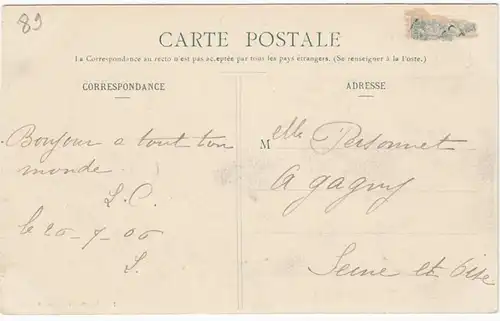 89
CARTE POSTALE
La Correspondance au recto n'est pas acceptée par tous les pays étrangers. (Se renseigner à la Poste.)
CORRESPONDANCE
Bonjour a tout ton
monde.
L. C.
le 20-7-06
L.
ADRESSE
Melle Personnet
A gagny
Seine et Oise